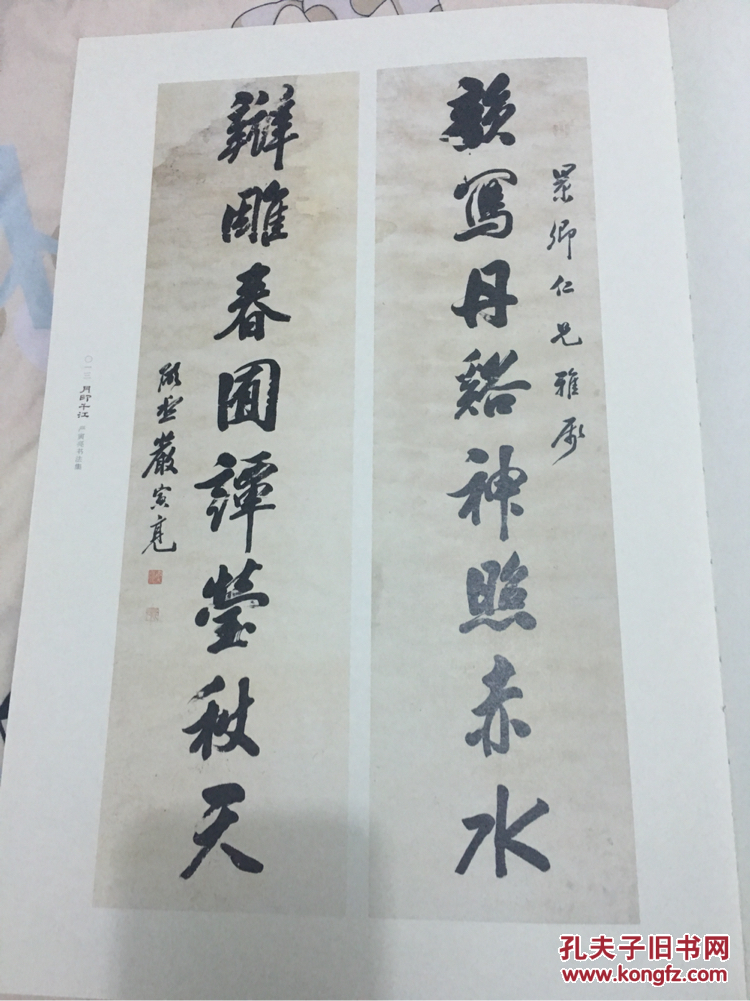 景卿仁兄雅屬
寫丹谿神照赤水
雕春圃譚瑩秋天
嚴寅亮
〇一三 月印千江 书法集
孔夫子旧书网
www.kongfz.com